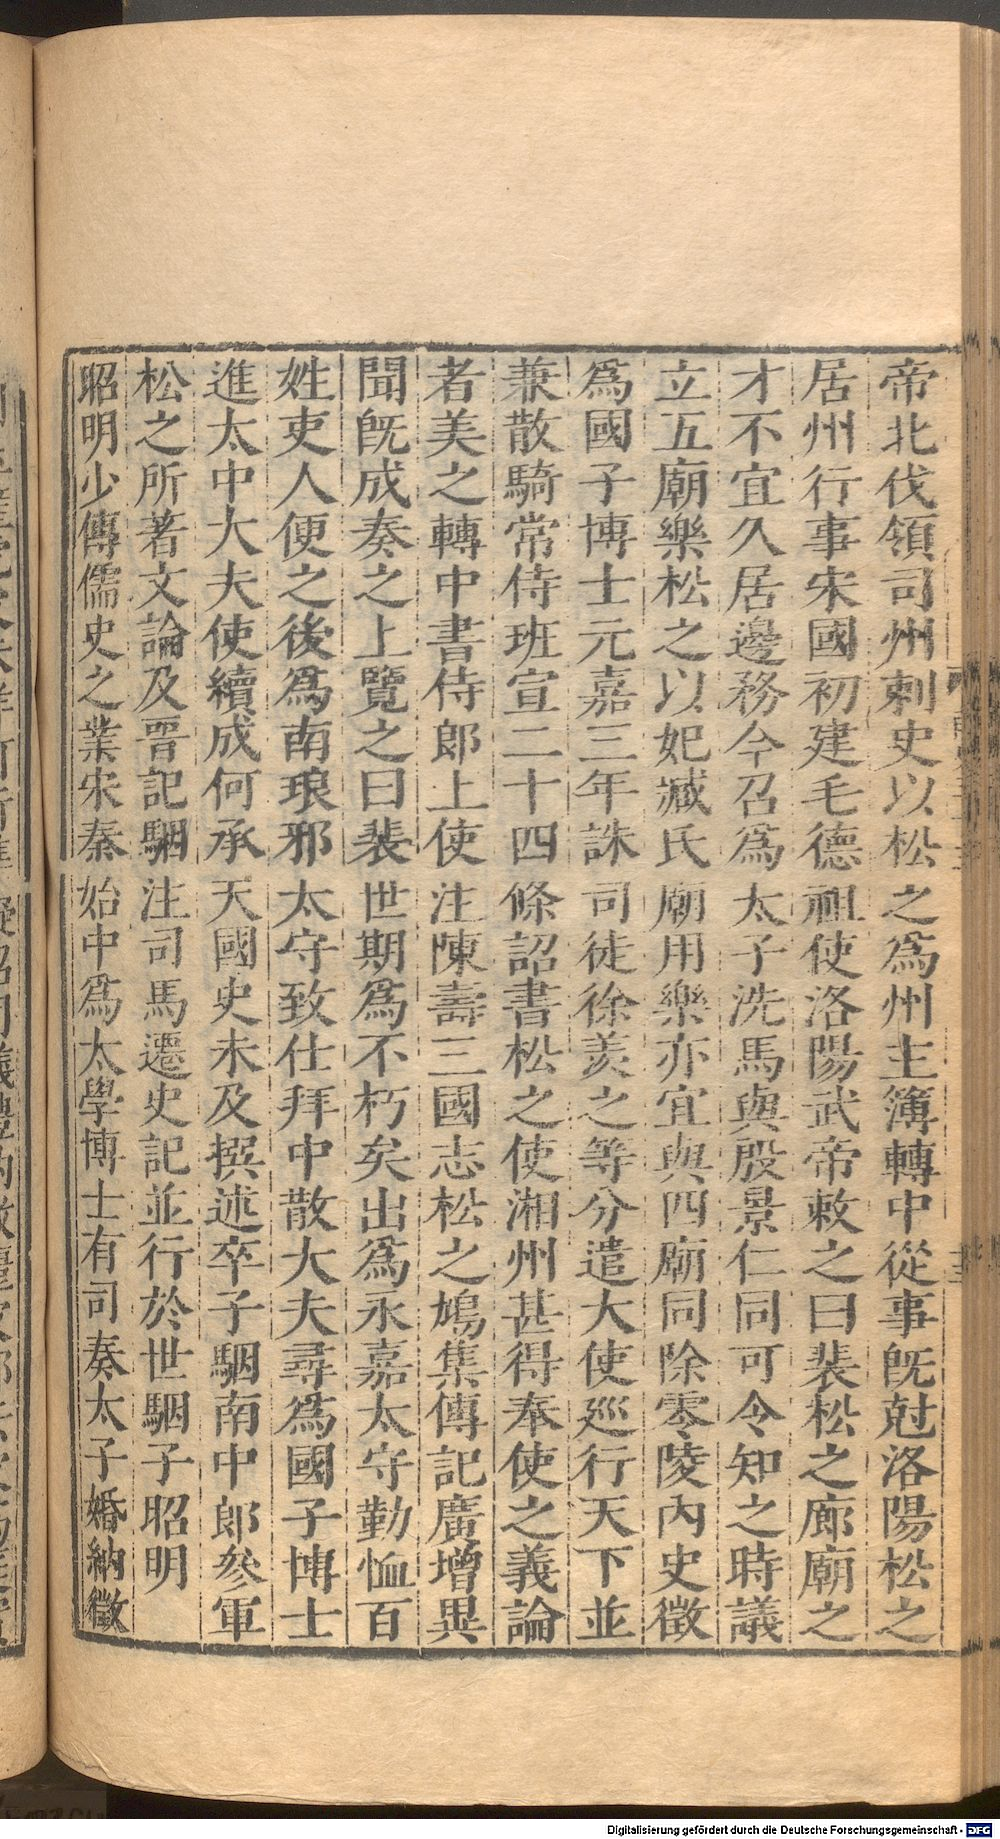 帝北伐領司州刺史以松之爲州主簿轉中從事旣尅洛陽松之
居州行事宋國初建毛德祖使洛陽武帝敕之曰裴松之廊廟之
才不宜久居邊務今召爲太子洗馬與殷景仁同可令知之時議
立五廟樂松之以妃臧氏廟用樂亦宜與四廟同除零陵內史徵
爲國子博士元嘉三年誅司徒徐羨之等分遣大使廵行天下並
兼散騎常侍班宣二十四條詔書松之使湘州甚得奉使之義論
者美之轉中書侍郎上使注陳壽三國志松之鳩集傳記廣增異
聞旣成奏之上覽之曰裴世期爲不朽矣出爲永嘉太守勤恤百
姓吏人便之後爲南琅邪太守致仕拜中散大夫尋爲國子博士
進太中大夫使續成何承天國史未及撰述卒子駰南中郎參軍
松之所著文論及晉記駰注司馬遷史記並行於世駰子昭明
昭明少傳儒史之業宋泰始中爲太學博士有司奏太子婚納徵
Digitalisierung gefördert durch die Deutsche Forschungsgemeinschaft - DFG